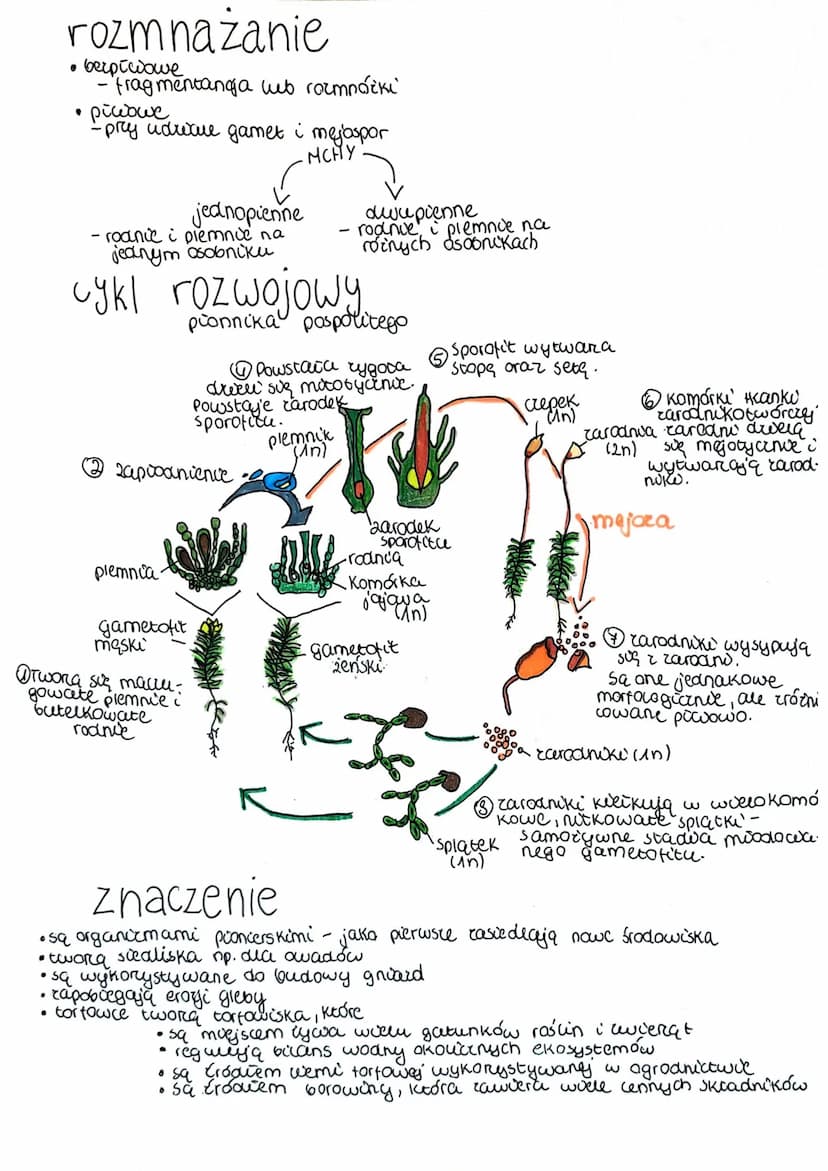 rozmnażanie
• bezpłciowe
- fragmentacja lub rozmnóżki
• płciowe
- przy udziale gamet i mejospor
MCHY
jednopienne
- rodnie i plemnie na
jednym osobniku
dwupienne
- rodnie i plemnie na
różnych osobnikach
cykl rozwojowy
płonnika pospolitego
④ Powstała zygota
dzieli się mitotycznie.
Powstaje zarodek
sporofitu.
⑤ Sporofit wytwarza
stopę oraz setę.
⑥ Komórki tkanki
zarodnikotwórczej
zarodni dzielą
się mejotycznie i
wytwarzają zarod-
niki.
czepek
(1n)
zarodnia
(2n)
plemnik
(1n)
② zapłodnienie
zarodek
sporofitu
mejoza
rodnia
komórka
jajowa
(1n)
plemnia
gametofit
męski
gametofit
żeński
① Tworzą się maczu-
gowate plemnie i
butelkowate
rodnie
⑦ zarodniki wysypują
się z zarodni.
Są one jednakowe
morfologicznie, ale zróżni
cowane płciowo.
zarodniki (1n)
⑧ zarodniki kiełkują w wielokomó
kowe, nitkowate splątki -
samożywne stadia młodocia-
nego gametofitu.
splątek
(1n)
znaczenie
• są organizmami pionierskimi - jako pierwsze zasiedlają nowe środowiska
• tworzą siedliska np. dla owadów
• są wykorzystywane do budowy gniazd
• zapobiegają erozji gleby
• torfowce tworzą torfowiska, które
• są miejscem życia wielu gatunków roślin i zwierząt
• regulują bilans wodny okolicznych ekosystemów
• są źródłem ziemi torfowej wykorzystywanej w ogrodnictwie
• są źródłem borowiny, która zawiera wiele cennych składników